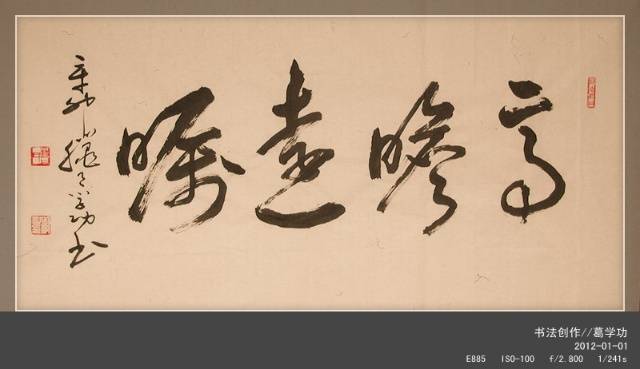 高瞻遠矚
辛卯 学功书
书法创作//葛学功
2012-01-01
E885 ISO-100 f/2.800 1/241s